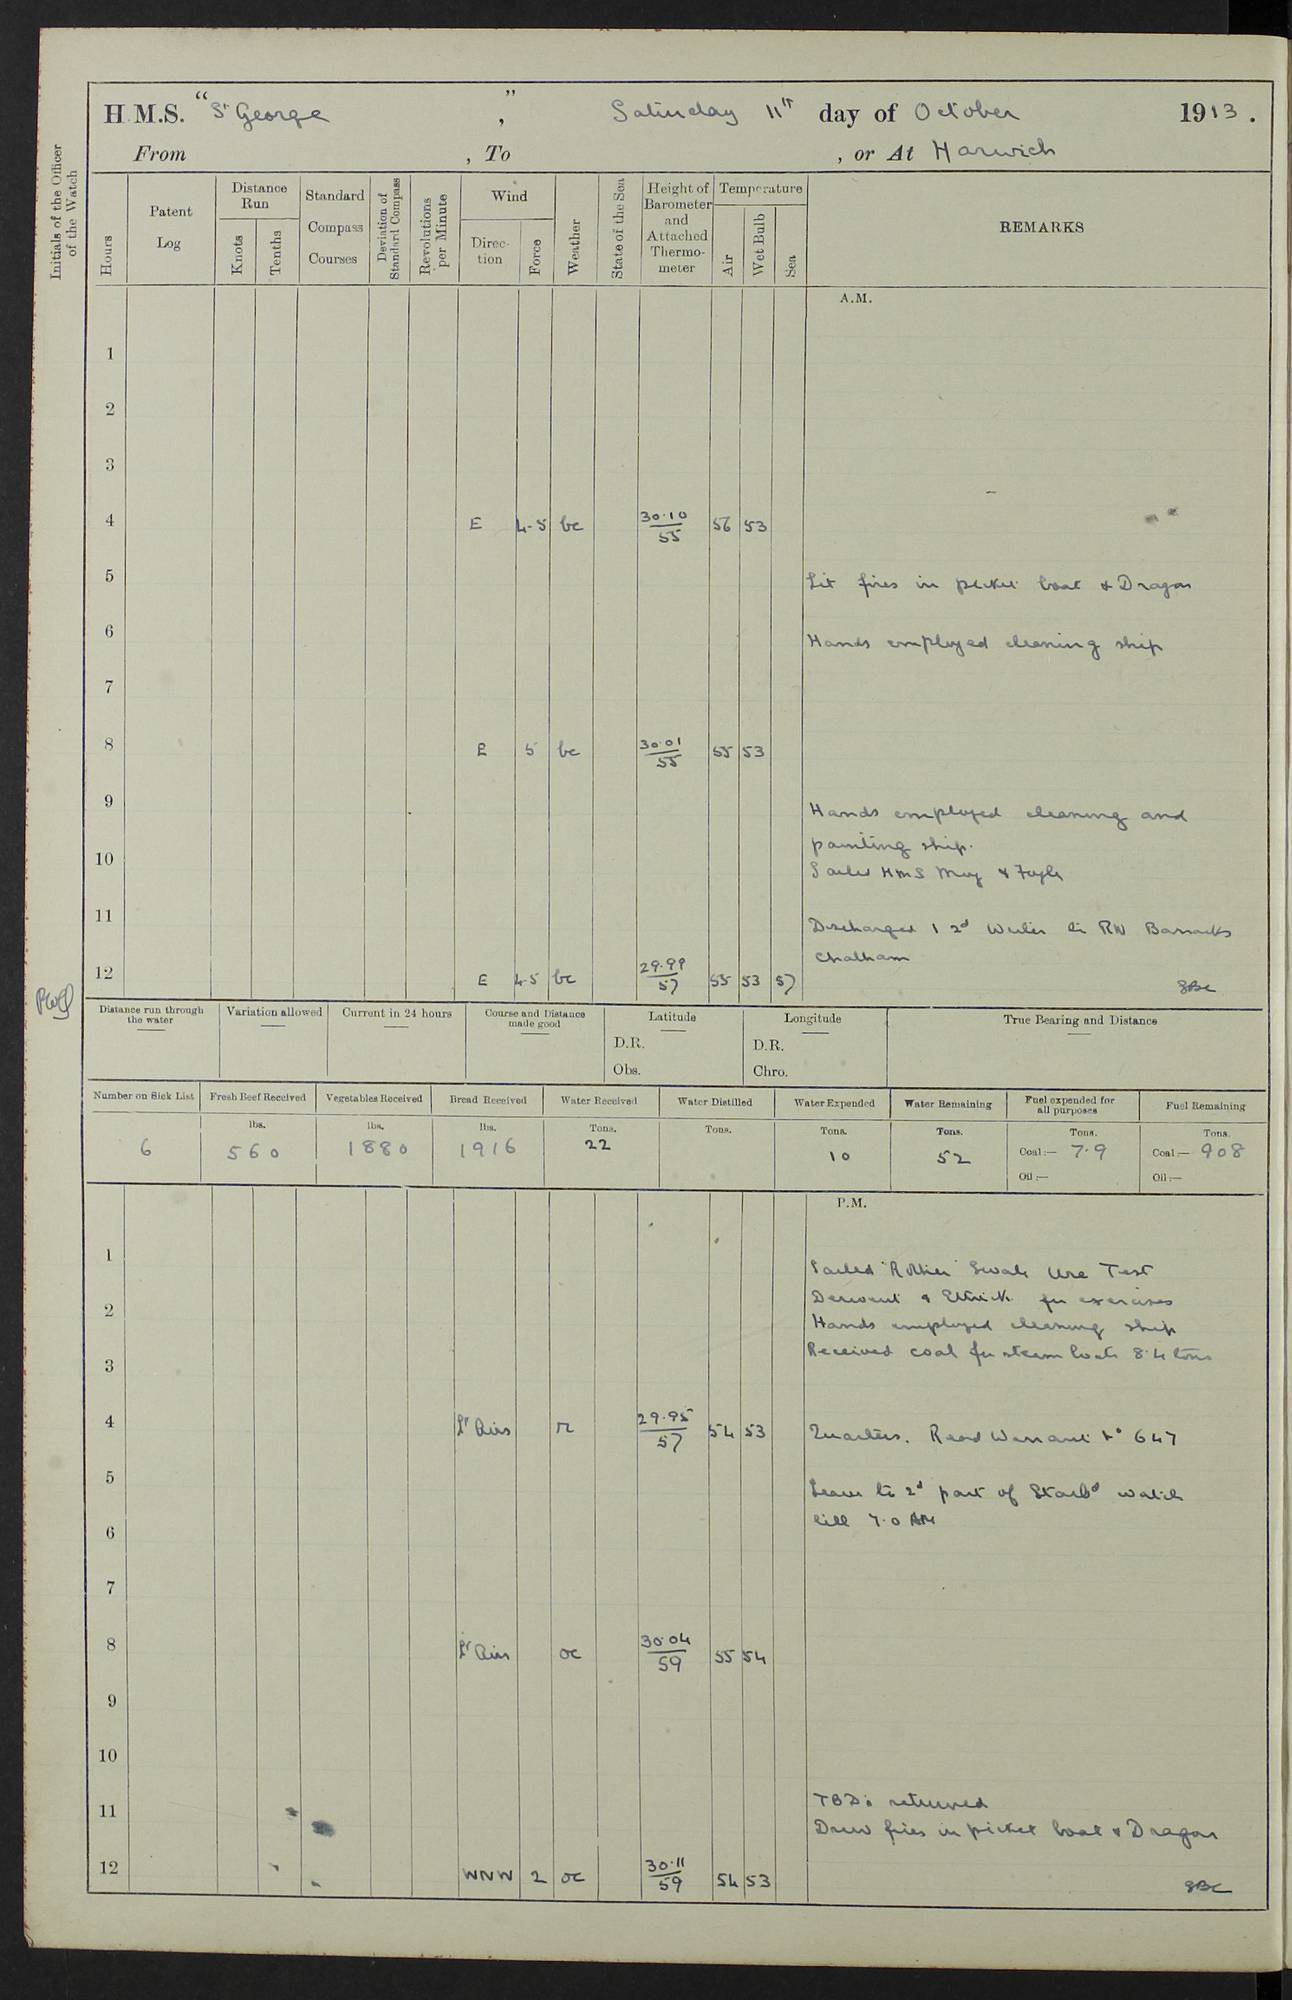 H.M.S. "St George", Saturday 11th day of October 1913.
From , To , or At Harwich
Initials of the Officer of the Watch
Hours
Patent Log
Distance Run
Knots
Tenths
Standard Compass Courses
Deviation of Standard Compass
Revolutions per Minute
Wind
Direction
Force
Weather
State of the Sea
Height of Barometer and Attached Thermometer
Temperature
Air
Wet Bulb
Sea
REMARKS
A.M.
1
2
3
4 E 4-5 bc 30·10/55 56 53
5 Lit fires in picket boat & Dragon
6 Hands employed cleaning ship
7
8 E 5 bc 30·01/55 55 53
9 Hands employed cleaning and
painting ship.
10 Sailed HMS Moy & Foyle
11 Discharged 1 2d Writer to RN Barracks
Chatham
12 E 4-5 bc 29·99/57 55 53 57
Distance run through the water
Variation allowed
Current in 24 hours
Course and Distance made good
Latitude
D.R.
Obs.
Longitude
D.R.
Chro.
True Bearing and Distance
Number on Sick List 6
Fresh Beef Received lbs. 560
Vegetables Received lbs. 1880
Bread Received lbs. 1916
Water Received Tons. 22
Water Distilled Tons.
Water Expended Tons. 10
Water Remaining Tons. 52
Fuel expended for all purposes Tons. Coal:— 7·9 Oil:—
Fuel Remaining Tons. Coal:— 908 Oil:—
P.M.
1 Sailed Rother Swale Ure Test
Derwent & Ettrick for exercises
2 Hands employed cleaning ship
Received coal for steam boats 8·4 tons
3
4 Lt Airs r 29·95/57 54 53 Quarters. Read Warrant No 647
5 Leave to 2d part of Starbd watch
till 7·0 AM
6
7
8 Lt Airs oc 30·04/59 55 54
9
10
11 TBDs returned
Drew fires in picket boat & Dragon
12 WNW 2 oc 30·11/59 54 53